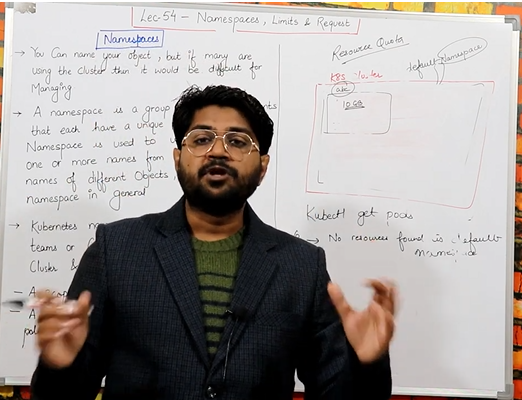 Lec-54 - Namespaces, Limits & Request
Namespaces
→ You Can name your object, but if many are
using the cluster then it would be difficult for
Managing
→ A namespace is a group
that each have a unique
Namespace is used to
one or more names from
names of different Objects,
namespace in general
→ Kubernetes
teams or
Cluster &
Resource Quota
default namespace
K8S cluster
abc
10 GB
Kubectl get pods
→ No resources found is default
namespace